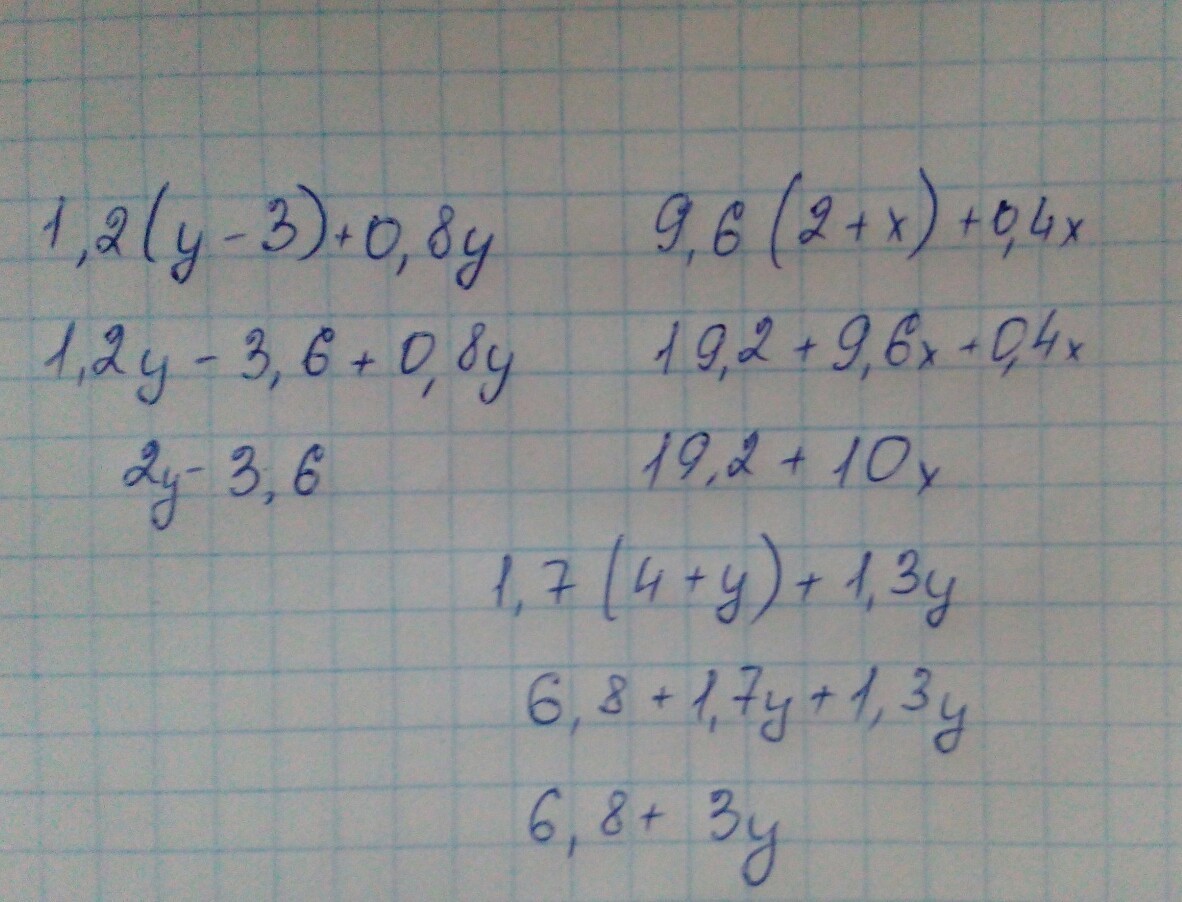 1,2(y-3)+0,8y
1,2y-3,6+0,8y
2y-3,6
9,6(2+x)+0,4x
19,2+9,6x+0,4x
19,2+10x
1,7(4+y)+1,3y
6,8+1,7y+1,3y
6,8+3y